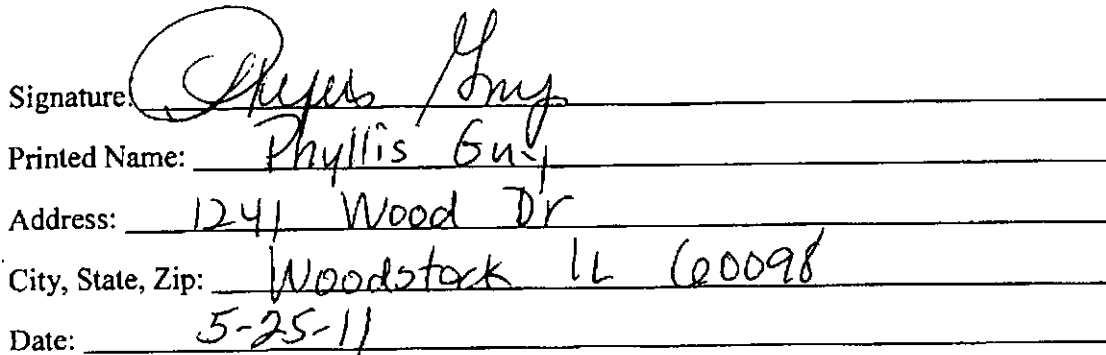 Signature: Phyllis Guy
Printed Name: Phyllis Guy
Address: 1241 Wood Dr
City, State, Zip: Woodstock IL 60098
Date: 5-25-11